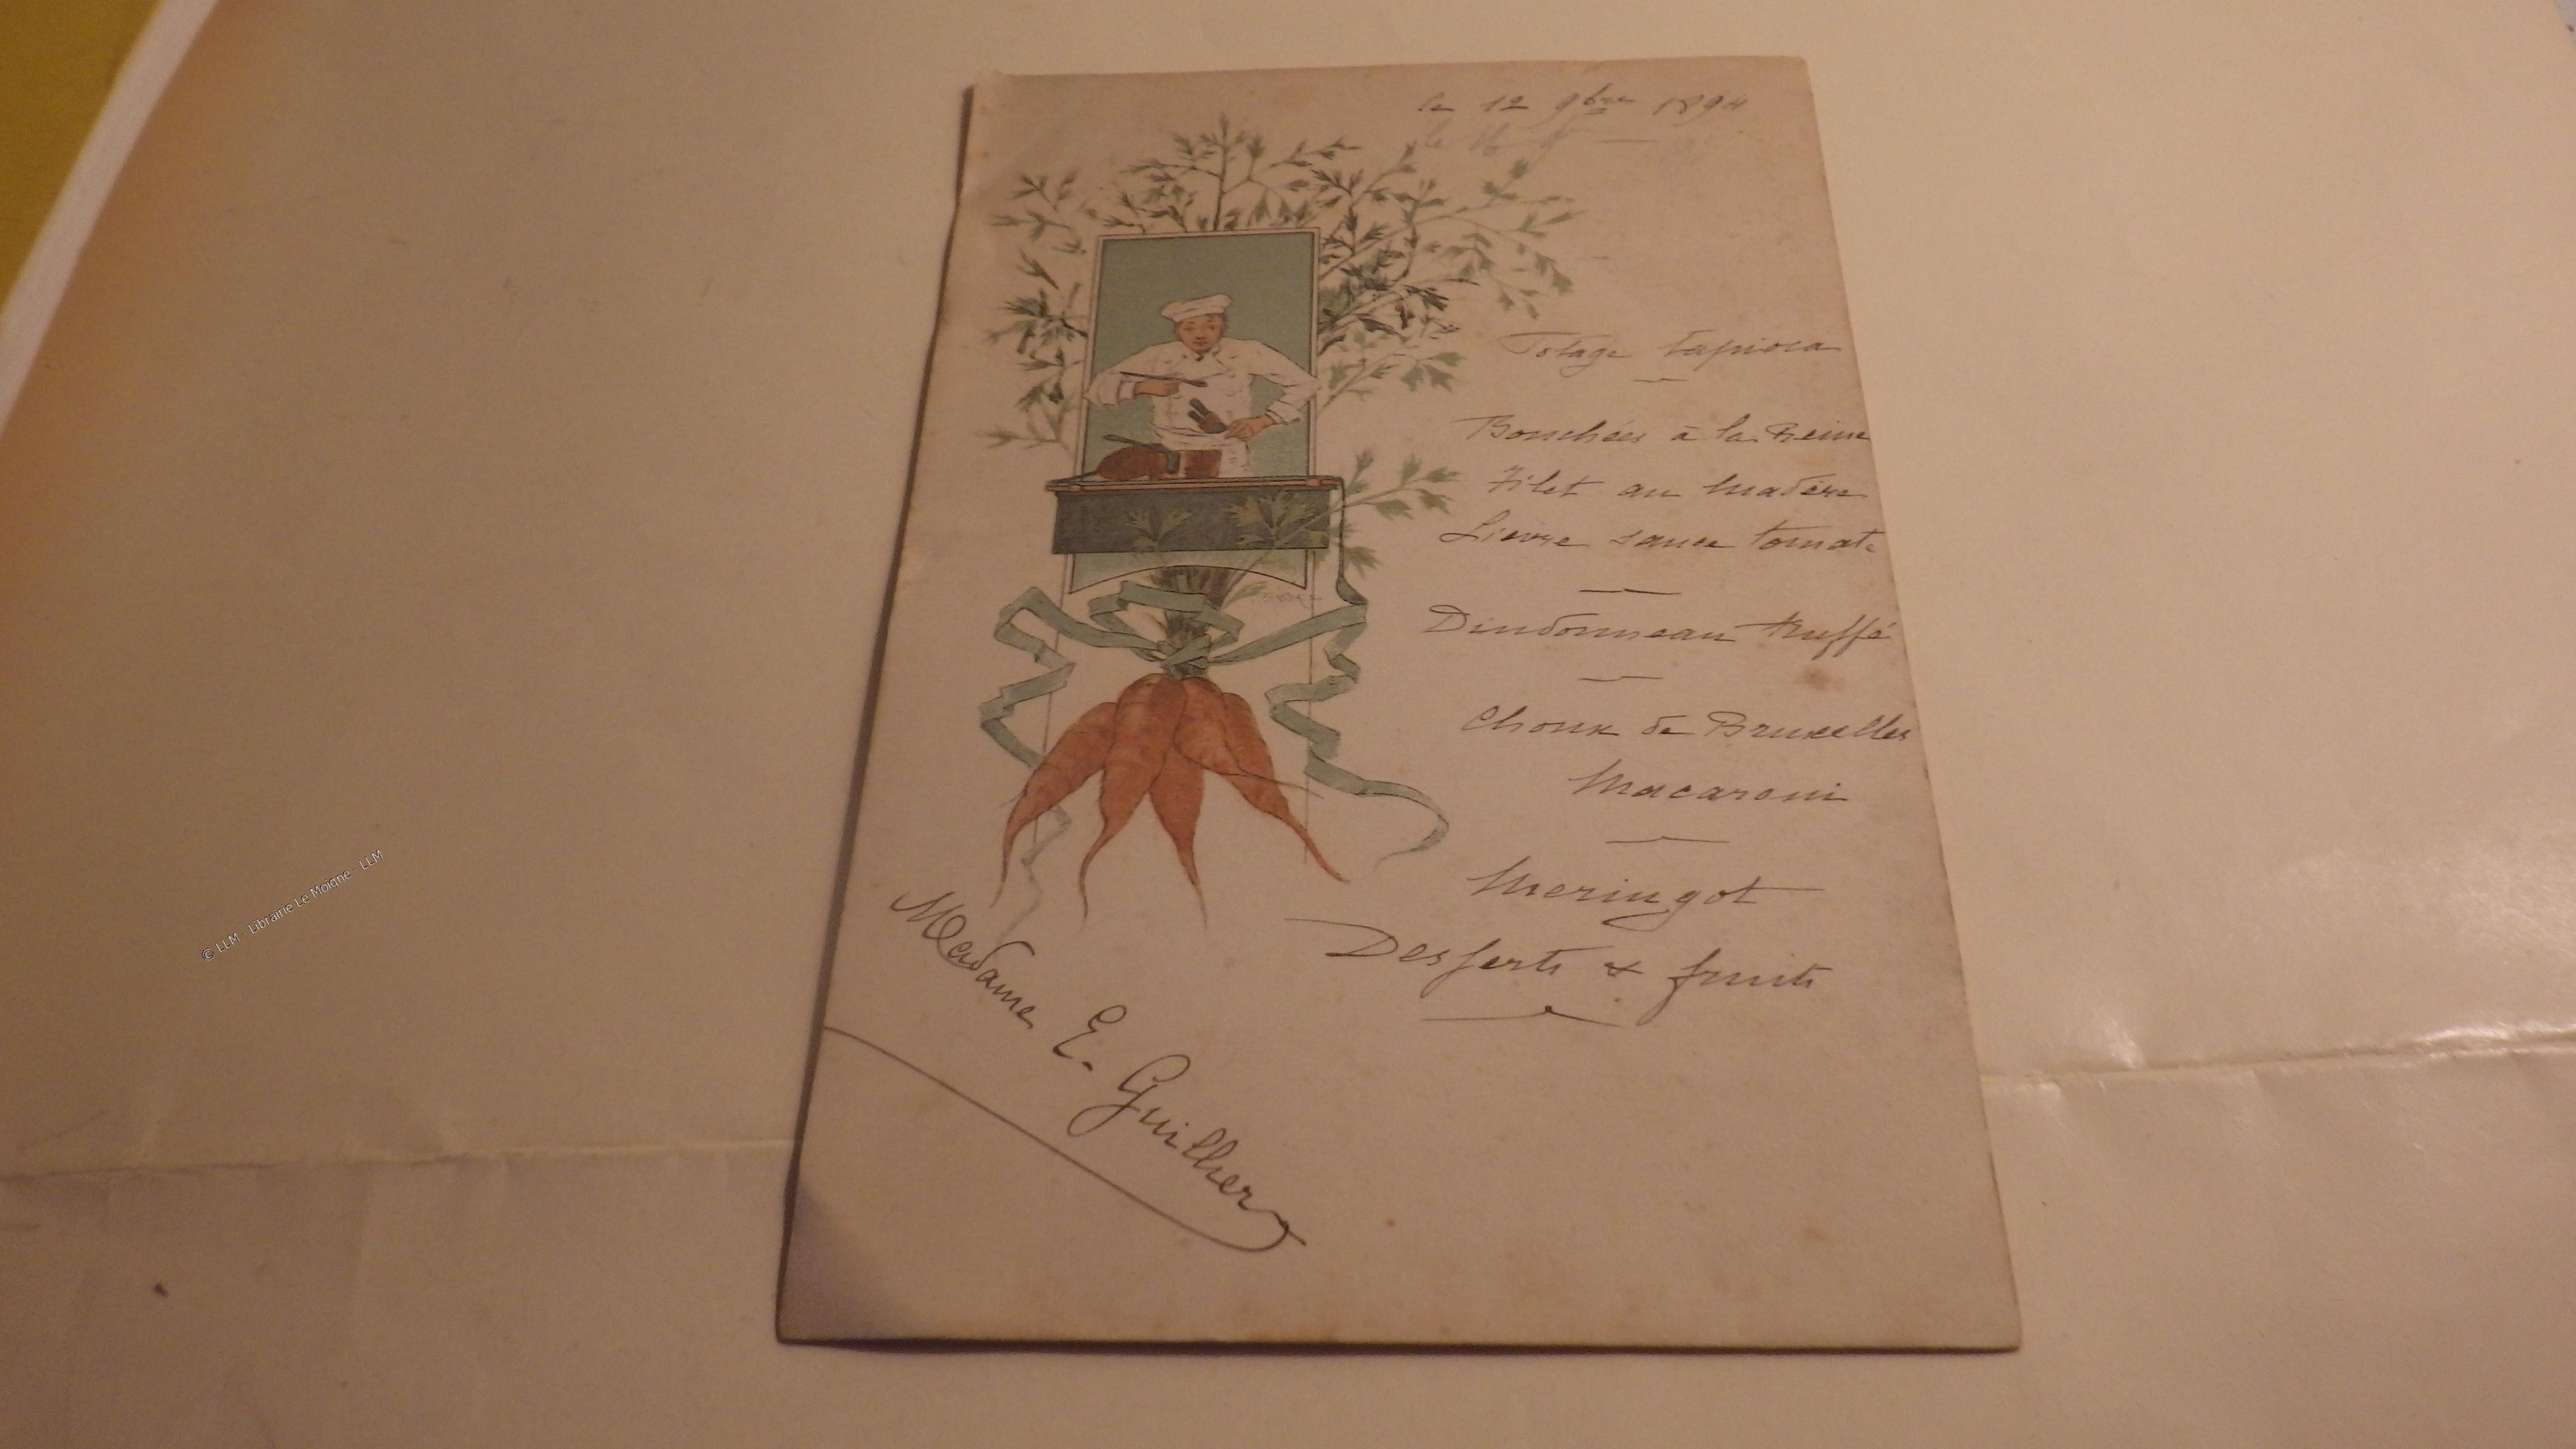 le 12 9bre 1894
Potage tapioca
Bouchées à la Reine
Filet au madère
Lievre sauce tomate
Dindonneau truffé
Choux de Bruxelles
Macaroni
Meringot
Desserts & fruits
Madame E. Guilher
© LLM - Librairie Le Moigne - LLM